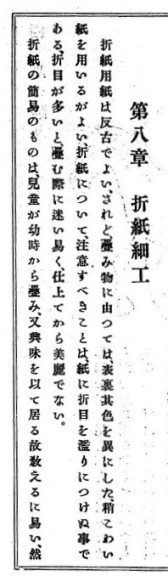 第八章　折紙細工
折紙用紙は反古でよい、されど疊み物に由つては、表裏其色を異にした、稍こわい
紙を用いるがよい、折紙について、注意すべきことは、紙に折目を濫りにつけぬ事で
ある、折目が多いと疊む際に迷い易く仕上てから美麗でない。
折紙の簡易のものは、兒童が幼時から疊み、又興味を以て居る故敎えるに易い、然